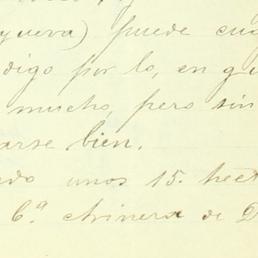 yueva) puede cua
digo por lo, en qu
mucho, pero sin
arse bien.
do unos 15. hect
6ª chinera de D